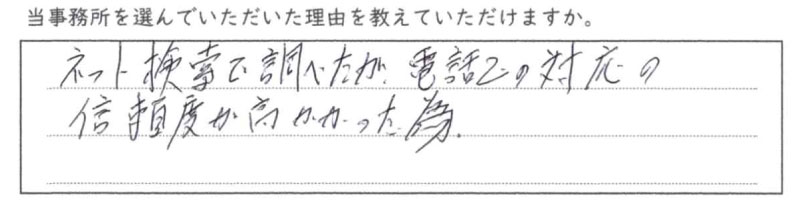 当事務所を選んでいただいた理由を教えていただけますか。
ネット検索で調べたが、電話での対応の
信頼度が高かかった為.